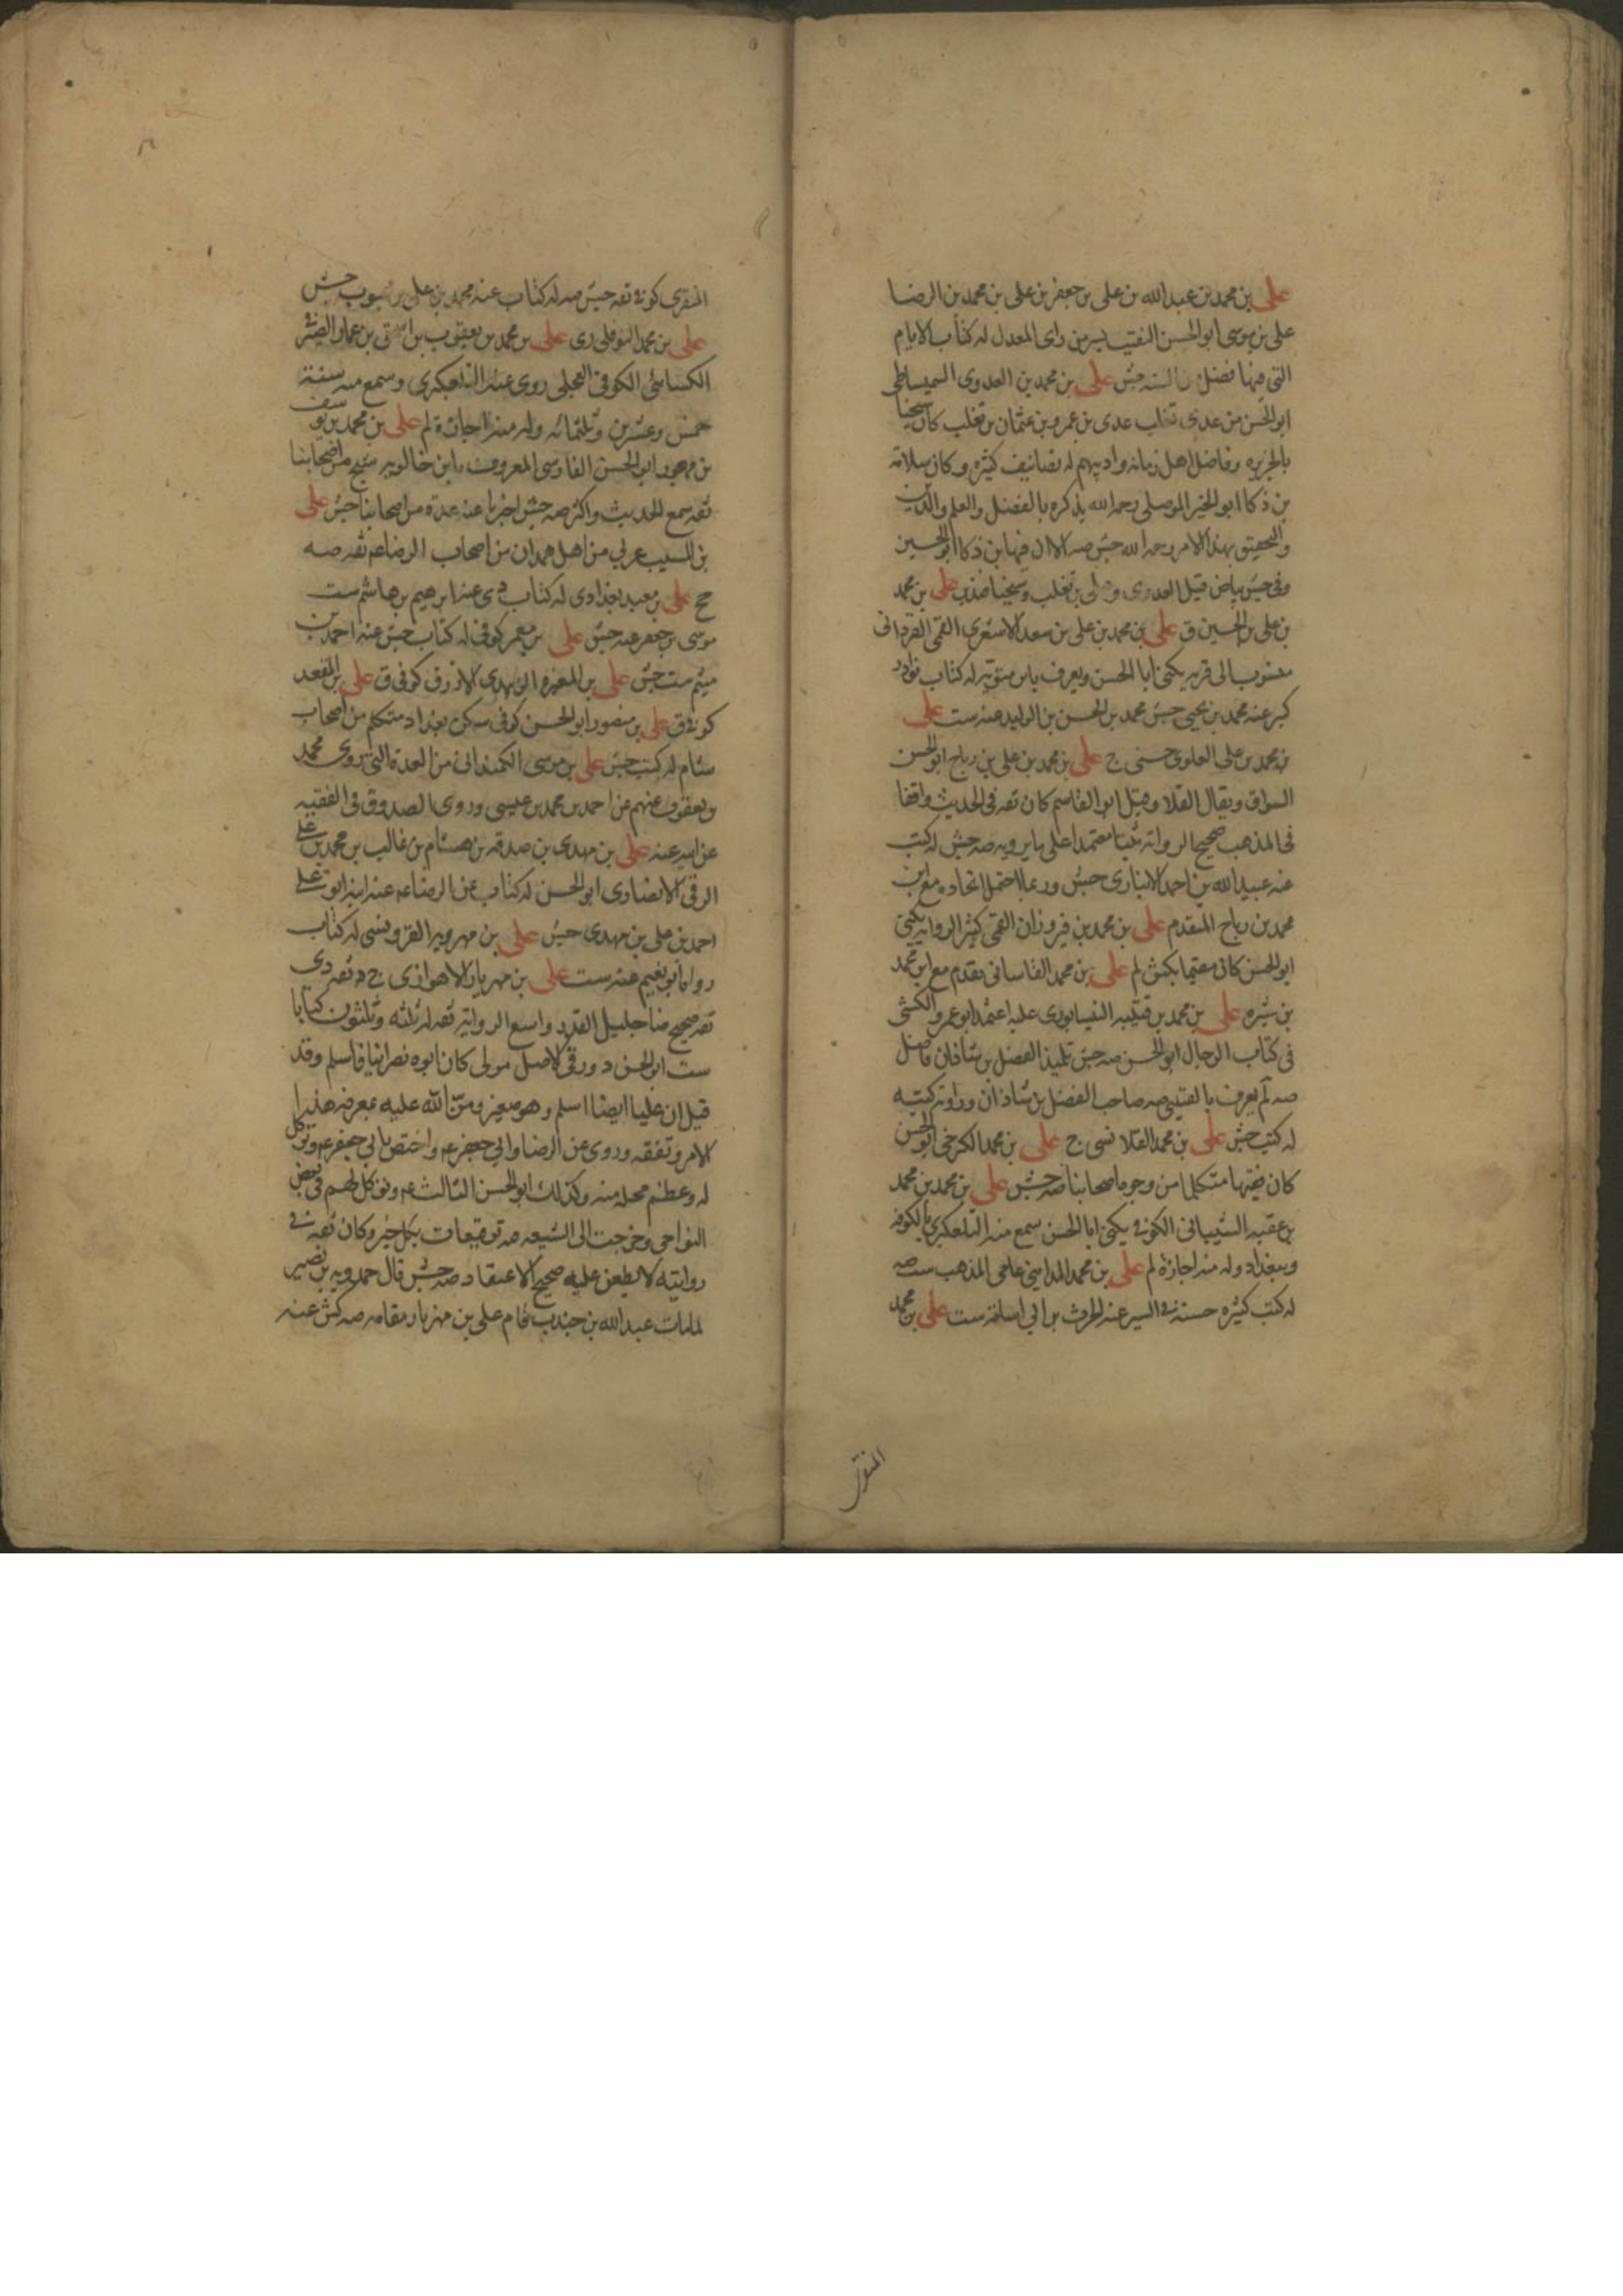 علی بن محمد بن عبد الله بن علی بن جعفر بن علی بن محمد بن الرضا
علی بن موسی ابو الحسن النقیب بسر من رای المعدل له کتاب الایام
التی فیها فضل من السنه جش علی بن محمد بن العدوی السمیساطی
ابو الحسن من عدی تغلب عدی بن عمرو بن عثمان بن تغلب کان شیخنا
بالجزیره وفاضل اهل زمانه وادیبهم له تصانیف کثیره وکان سلامه
بن ذکا ابو الخیر الموصلی رحمه الله یذکره بالفضل والعلم والدین
والتحقیق بهذا الامر رحمه الله جش صه الا ان فیها بن ذکا ابو الحسین
وفی جش بیاض قبیل العدوی بن تغلب وشیخنا علی بن محمد
بن علی بن الحسین ق علی بن محمد بن علی بن سعد الاشعری القمی القزدانی
منسوب الی قریه یکنی ابا الحسن ویعرف بابن متویه له کتاب نوادر
کبیر عنه محمد بن یحیی جش محمد بن الحسن بن الولید عنه ست علی
بن محمد بن علی العلوی حسنی ج علی بن محمد بن علی بن رباح ابو الحسن
السواق ویقال القلا وقیل ابو القاسم کان ثقه فی الحدیث واقفا
فی المذهب صحیح الروایه ثبتا معتمدا علی ما یرویه صه جش له کتب
عنه عبید الله بن احمد الانباری جش وربما احتمل اتحاده مع ابن
محمد بن رباح المتقدم علی بن محمد بن فیروزان القمی کثیر الروایه یکنی
ابو الحسن کان مقیما بکش لم علی بن محمد القاسانی تقدم مع ابن محمد
بن شیره علی بن محمد بن قتیبه النیسابوری علیه اعتمد ابو عمرو الکشی
فی کتاب الرجال ابو الحسن صه جش تلمیذ الفضل بن شاذان فاضل
صه لم یعرف بالقتیبی صه صاحب الفضل بن شاذان وراویه کتبه
له کتب جش علی بن محمد القلانسی ج علی بن محمد الکرخی ابو الحسن
کان فقیها متکلما من وجوه اصحابنا صه جش علی بن محمد بن محمد
بن عقبه الشیبانی الکوفی یکنی ابا الحسن سمع منه التلعکبری بالکوفه
وببغداد وله منه اجازة لم علی بن محمد المداینی عامی المذهب ست صه
له کتب کثیره حسنه فی السیر عنه الحرث بن ابی اسامة ست علی بن محمد
المنقری
المنقری کوفی ثقه جش صه له کتاب عنه محمد بن علی بن محبوب جش
علی بن محمد النوفلی ری علی بن محمد بن یعقوب بن اسحق بن عمار الصیرفی
الکسائی الکوفی العجلی روی عنه التلعکبری وسمع منه سنة
خمس وعشرین وثلثمائه وله منه اجازة لم علی بن محمد بن یوسف
بن مهجور ابو الحسن الفارسی المعروف بابن خالویه شیخ من اصحابنا
ثقه سمع الحدیث واکثر صه جش اخبرنا عنه عدة من اصحابنا جش علی
بن المسیب عربی من اهل همدان من اصحاب الرضا ع ثقه صه
جخ علی بن معبد بغدادی له کتاب دی عنه ابرهیم بن هاشم ست
موسی بن جعفر عنه جش علی بن معمر کوفی له کتاب جش عنه احمد بن
میثم ست جش علی بن المغیره الزبیدی الازرق کوفی ق علی بن المقعد
کوفی ق علی بن منصور ابو الحسن کوفی سکن بغداد متکلم من اصحاب
هشام له کتب جش علی بن موسی الکمندانی من العدة التی روی محمد
بن یعقوب عنهم عن احمد بن محمد بن عیسی وروی الصدوق فی الفقیه
عن ابیه عنه علی بن مهدی بن صدقه بن هشام بن غالب بن محمد بن علی
الرقی الانصاری ابو الحسن له کتاب عن الرضا ع عنه ابنه ابو علی
احمد بن علی بن مهدی جش علی بن مهرویه القزوینی له کتاب
رواه ابو نعیم عنه ست علی بن مهزیار الاهوازی ج د ثقه دی
ثقه صحیح ضا جلیل القدر واسع الروایه ثقه له ثلثه وثلثون کتابا
ست ابو الحسن دورقی الاصل مولی کان ابوه نصرانیا فاسلم وقد
قیل ان علیا ایضا اسلم وهو صغیر ومن الله علیه بمعرفه هذا
الامر وتفقه وروی عن الرضا وابی جعفر ع واختص بابی جعفر ع وتوکل
له وعظم محله منه وکذلک ابو الحسن الثالث ع وتوکل لهم فی بعض
النواحی وخرجت الی الشیعه صه توقیعات بکل خیر وکان ثقه فی
روایته لا یطعن علیه صحیح الاعتقاد صه جش قال حمدویه بن نصیر
لما مات عبد الله بن جندب قام علی بن مهزیار مقامه صه کش عنه